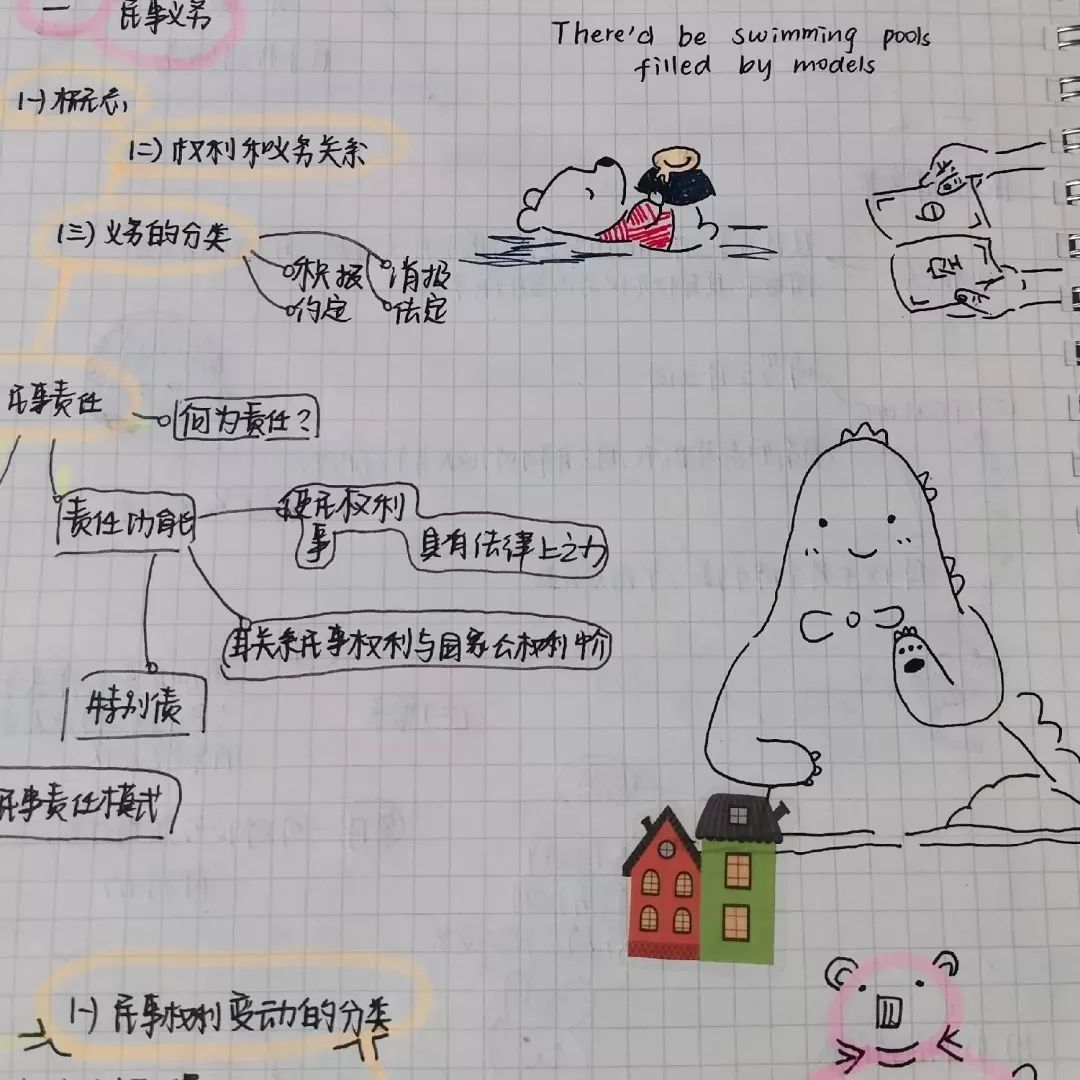 一 民事义务
There'd be swimming pools
filled by models
(一)概念
(二)权利和义务关系
(三)义务的分类
积极 消极
约定 法定
民事责任
何为责任?
责任功能
使民事权利
具有法律上之力
联关系民事权利与国家公权利中介
特别债
民事责任模式
(一)民事权利变动的分类